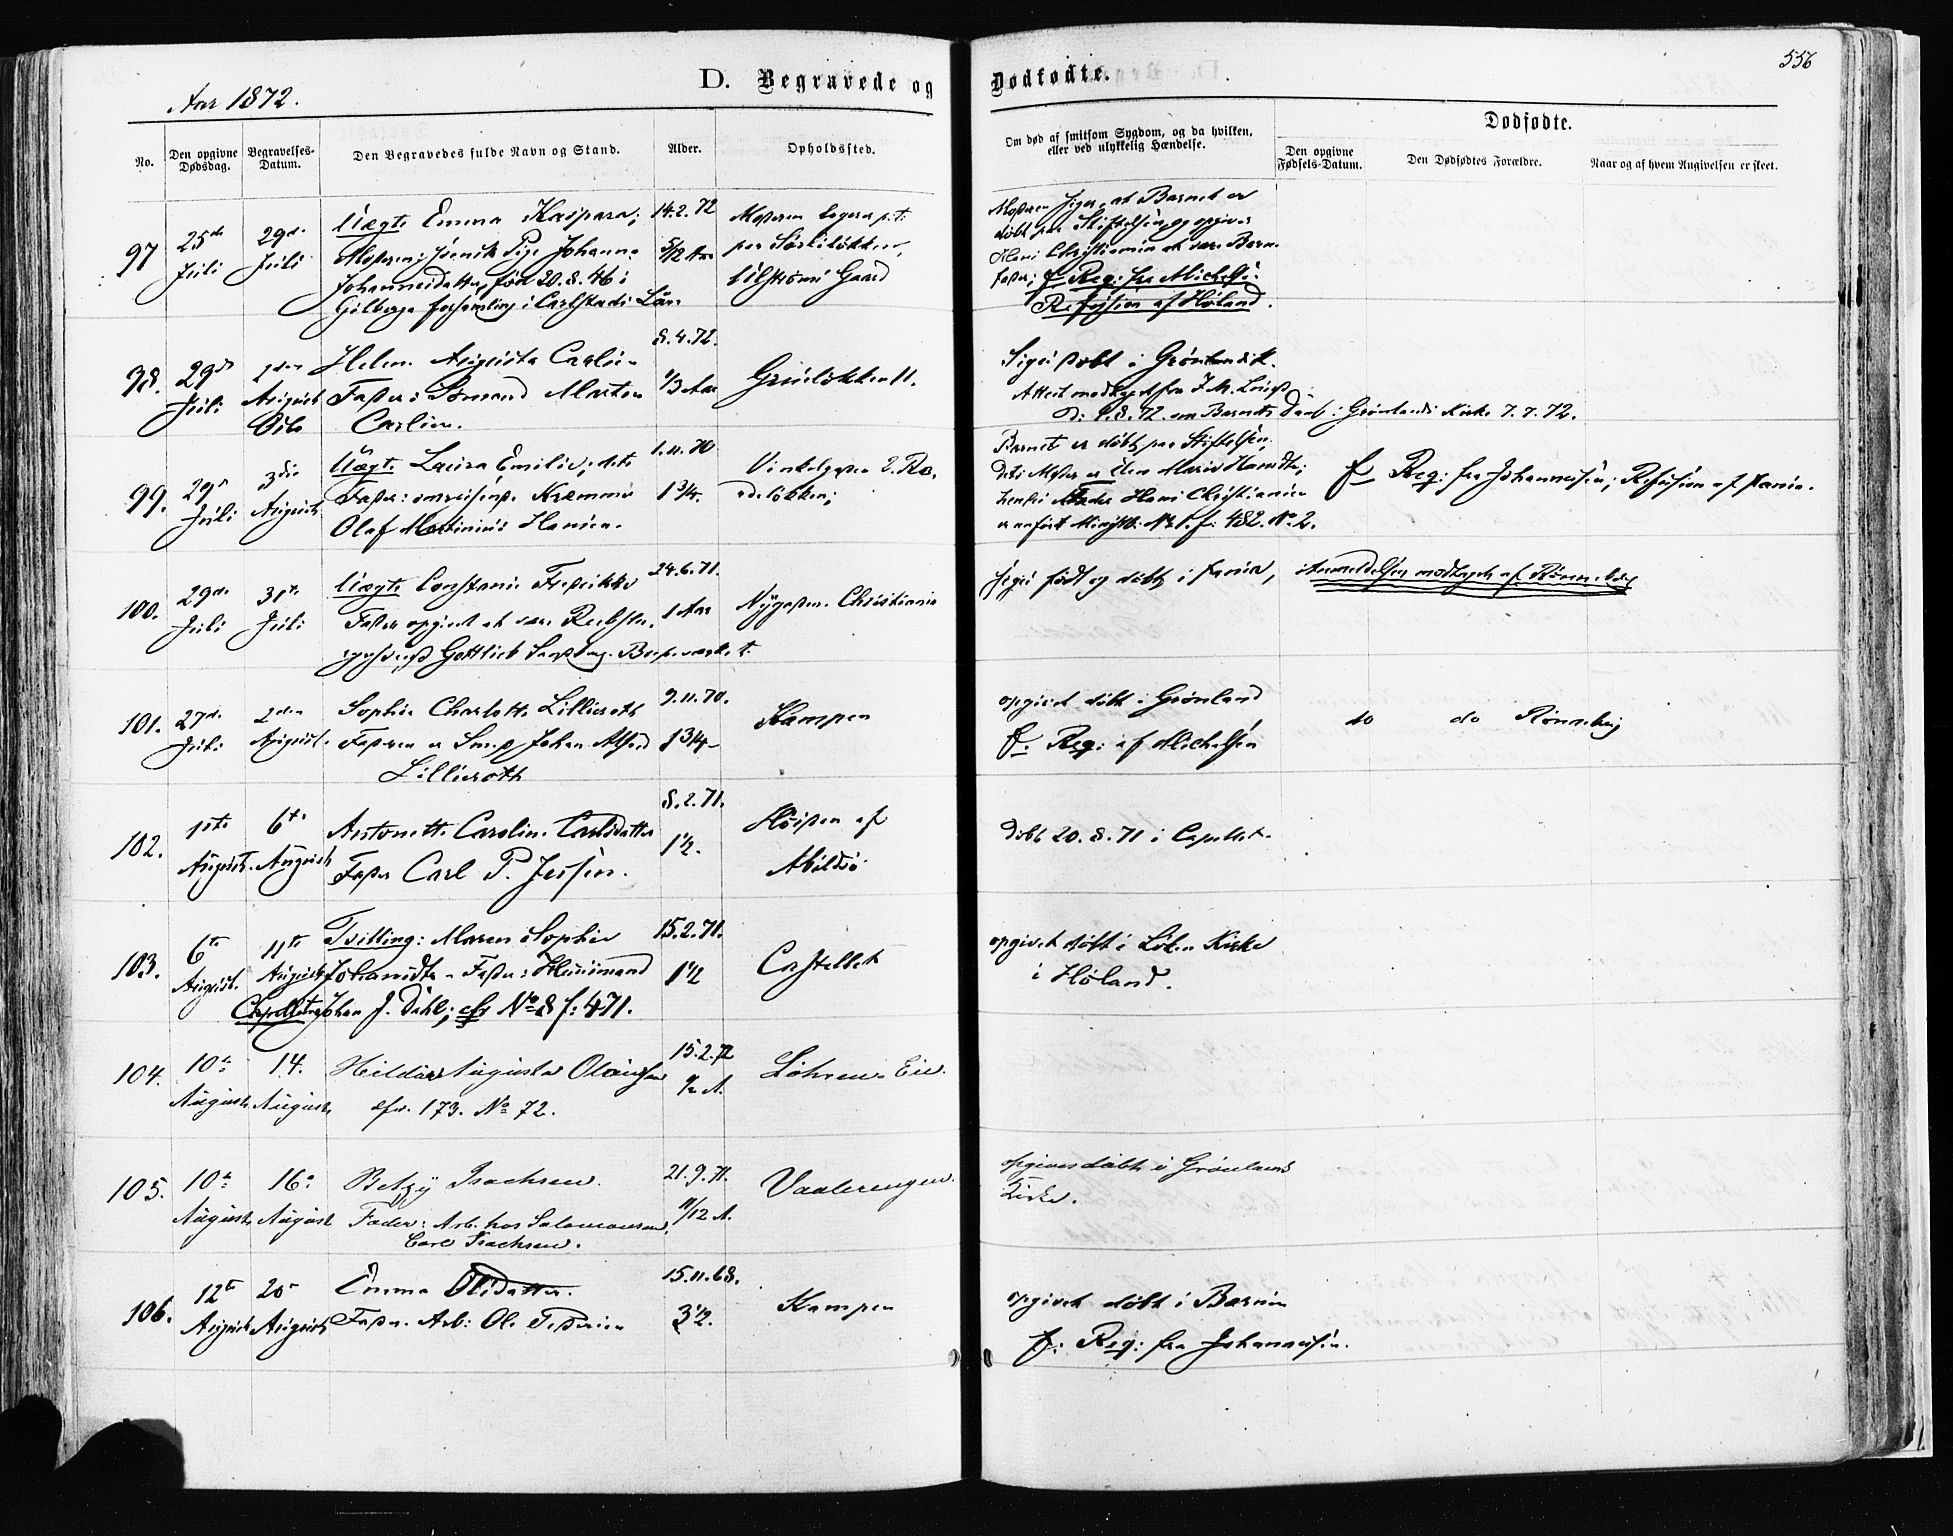 556
Aar 1872.
D. Begravede og Dødfødte.
No.
Den opgivne Dødsdag.
Begravelses-Datum.
Den Begravedes fulde Navn og Stand.
Alder.
Opholdssted.
Om død af smitsom Sygdom, og da hvilken,
eller ved ulykkelig Hændelse.
Dødfødte.
Den opgivne Fødsels-Datum.
Den Dødfødtes Forældre.
Naar og af hvem Angivelsen er skeet.
97
25de Juli
29de Juli
Uægte Emma Kaspara;
Moderen: svensk Pige Johanna
Johannesdatter, född 20.8.46 i
Gilberga Forsamling i Carlstads Län
14.2.72
5/12 Aar
Moderen logerer p.t.
paa
Gaard
Moderen siger, at Barnet er
døbt paa Stiftelsen, og opgiver
Christiania at være Barnets
Fader; f. Reg: fra Michelsen
Refusion af Høland.
98.
29de Juli
2den August Oslo
Helen Augusta Carlsen
Fader: Sömand Morten
Carlsen.
8.4.72.
1/3 Aar
Grünelökken 11.
Siges døbt i Grönlands K.
Attest modtaget fra
D: 6.8.72. om Barnets Daab i Grönlands Kirke 7.7.72.
99.
29de Juli
3die August
Uægte Laura Emilie; dets
Fader: omreisende Kræmmer
Olaf Martinius Hansen.
1.11.70
1 3/4.
Vinkelgaden 2. Ro-
delökken;
Barnet er döbt paa Stiftelsen;
dets Moder er Ellen Marie
Hans Christiansen
er anført No 1. f: 482. No 2.
f Reg: fra Johannessen; Refusion af
100.
29de Juli
31te Juli
Uægte Constance Fredrikke
Fader opgivet at være
Gottlieb
24.6.71.
1 Aar
Nygaden Christiania
siges födt og döbt i
Anmeldelsen modtaget af Rönneberg
101.
27de Juli
2den August.
Sophie Charlotte Lillieroth
Faderen er Smed Johan Alfred
Lillieroth
9.11.70.
1 3/4
Kampen
opgivet döbt i Grönland
f. Reg: af Michelsen
do do Rönneberg
102.
1ste August.
6te August
Antonette Caroline Carlsdatter
Fader Carl P. Jessen.
8.2.71.
1 1/2.
Höiden af
Abildsö
Döbt 20.8.71 i Capellet.
103.
6te August.
11te August
Capellet
Tvilling: Maren Sophie
Johansdtr. Fader: Huusmand
Johan J. Dahl; cfr No 8 f: 471.
15.2.71.
1 1/2
Castellet
opgivet döbt i Löken Kirke
i Höland.
104.
10de August.
14. August.
Hilda Augusta Olausen
cfr. 173. No 72.
15.2.72
1/2 A.
Lohrens Eie.
105.
10de August
16de August
Betzy Isachsen.
Fader: Arb. hos Salomonsen,
Carl Isachsen.
21.9.71.
11/12 A.
Vaalerengen.
opgives döbt i Grönlands
Kirke.
106.
12te August
20de August
Emma Olsdatter.
Fader. Arb: Ole Pedersen
15.11.68.
3 1/2.
Kampen
opgivet döbt i Bærum
f: Reg: fra Johannessen.